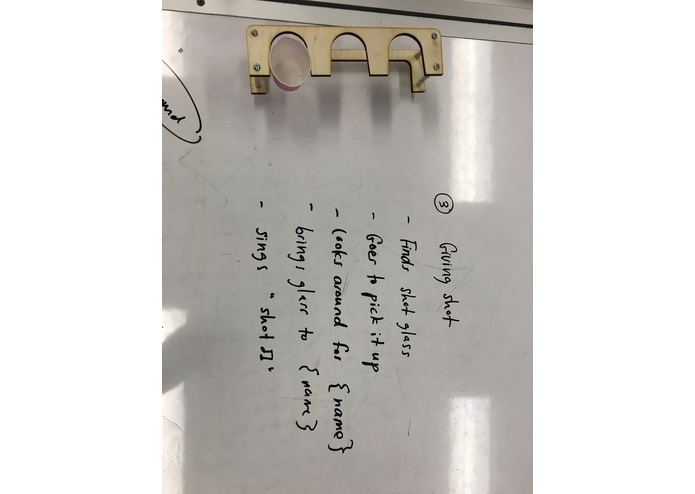 ③ Giving shot
- Finds shot glass
- Goes to pick it up
- Looks around for {name}
- brings glass to {name}
- sings "shot